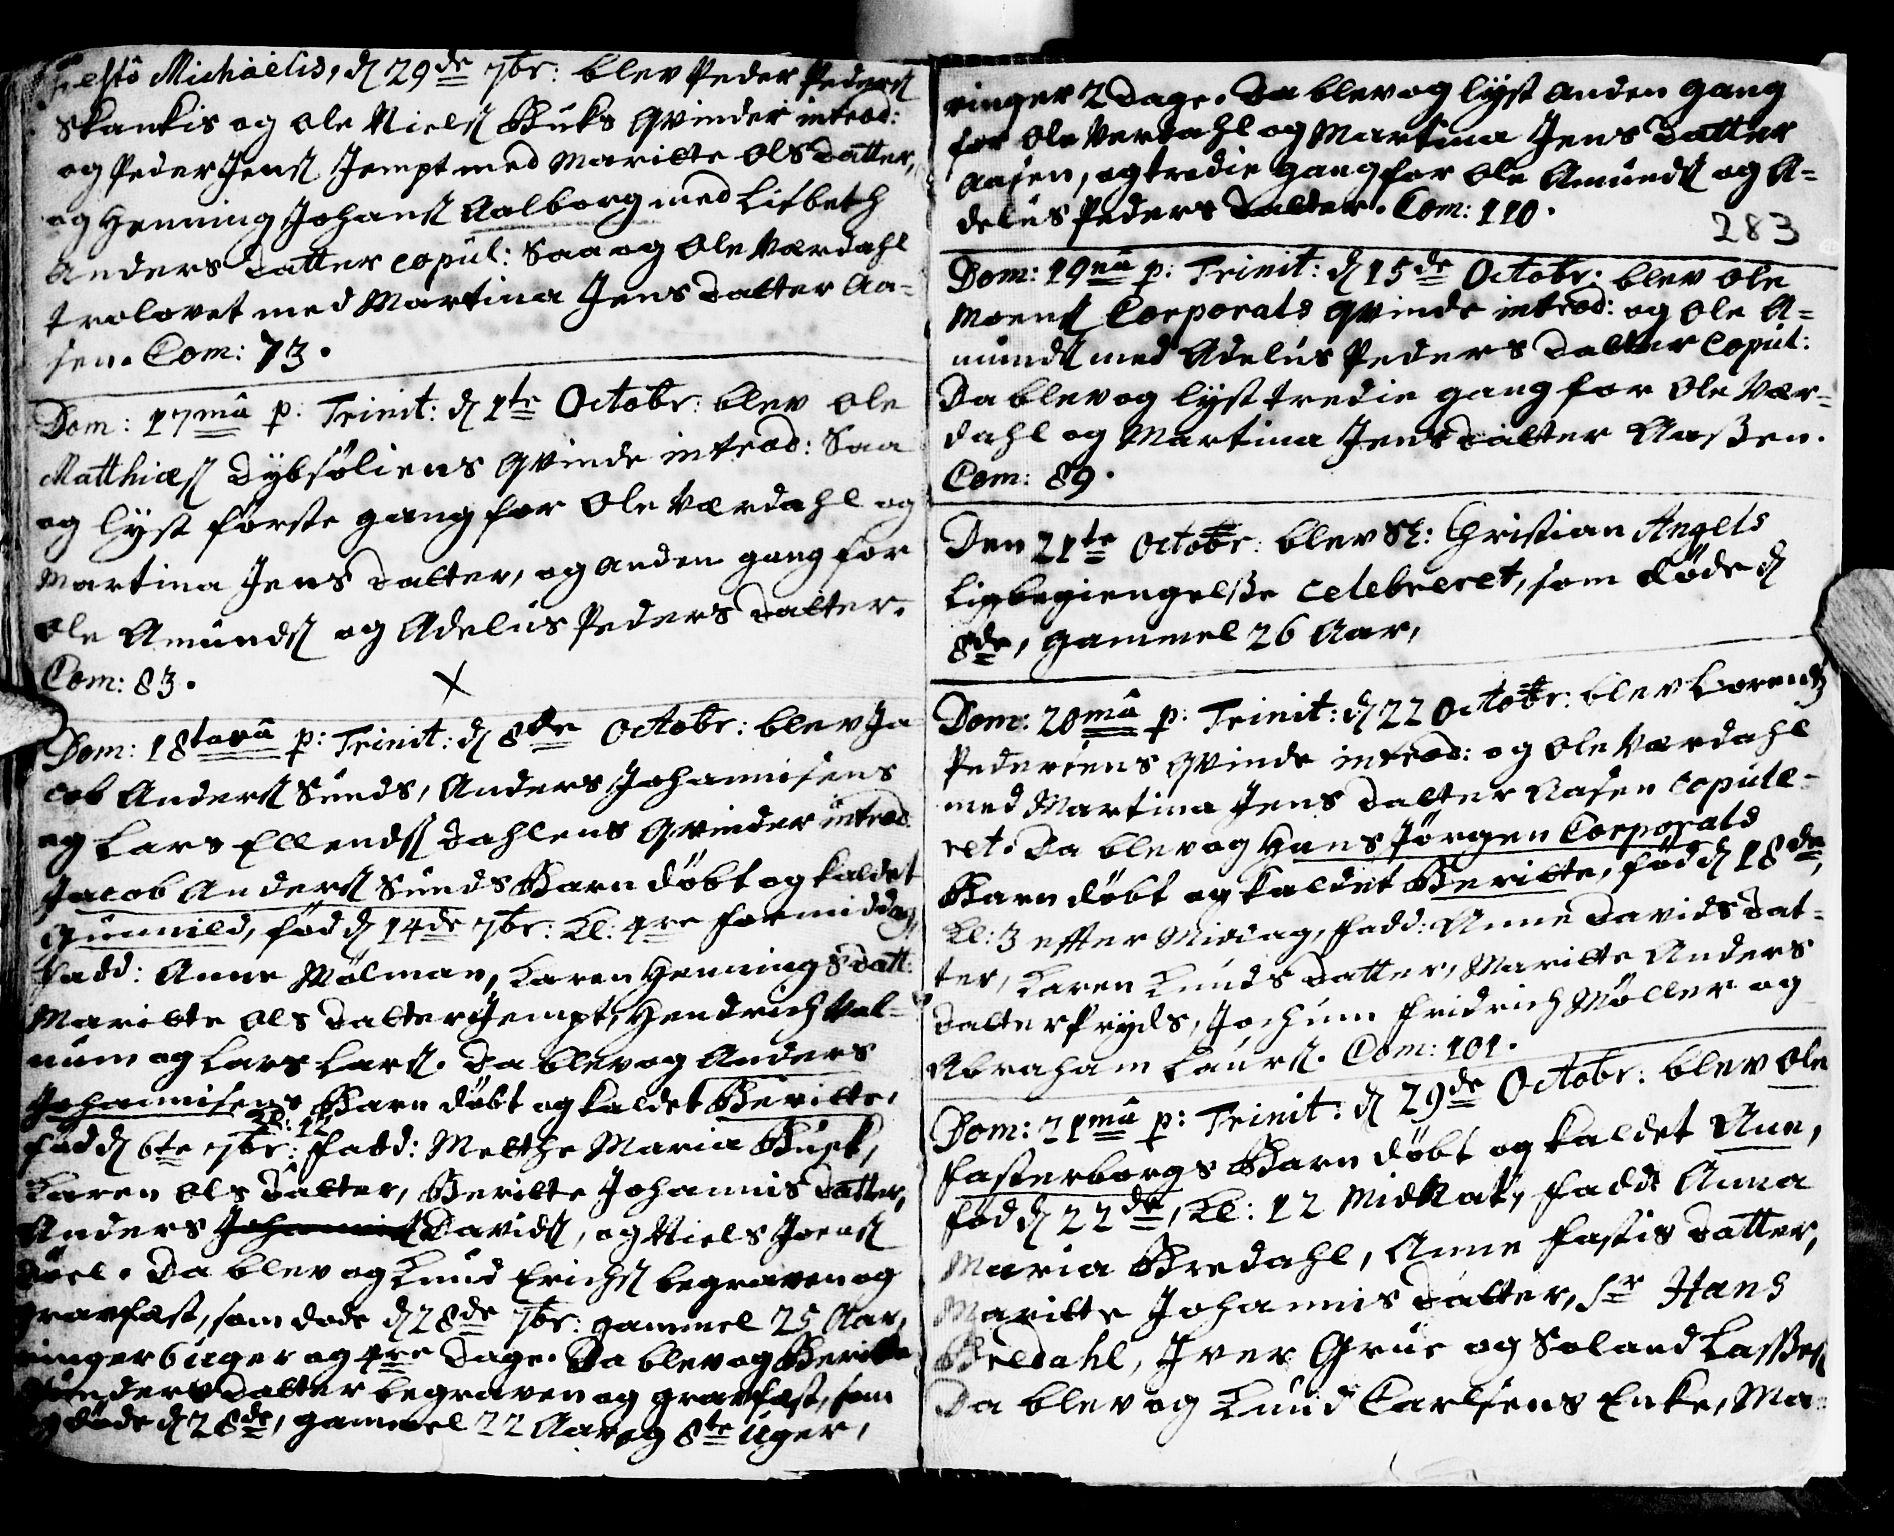 Festô Michaelis, d 29de 7br: blev Peder Peders
Skankis og Ole Niels Buks Qvinder introd:
og Peder Jens Jempt med Maritte Ols datter,
og Henning Johans Aalborg med Lisbeth
Anders datter copul: Saa og Ole Værdahl
trolovet med Martina Jens datter Aa-
sen. Com: 73.
Dom: 17mâ p: Trinit: d 1te Octobr: blev Ole
Matthies Dybsøliens Qvinde introd: Saa
og lyst første gang for Ole Værdahl og
Martina Jens datter, og anden gang for
Ole Amunds og Adelus Peders datter.
Com: 83.
Dom: 18tavâ p: Trinit: d 8de Octobr: blev Ja
cob Anders Sunds, Anders Johannisens
og Lars Ellends Dahlens Qvinder introd
Jacob Anders Sunds Barn døbt og kaldet
Gunnild, fød d 14de 7br: Kl: 4re formiddag,
Fadd: Anne Mølman, Karen Hennings datt:
Maritte Ols datter Jempt, Hendrich Val-
num og Lars Lars. Da blev og Anders
Johannisens Barn døbt og kaldet Beritte,
Kl: 12
fød d 6te 7br: Fadd: Metthe Maria Buck,
Karen Ols datter, Beritte Johannis datter,
Anders Johannis Davids, og Niels Joens
Døel. Da blev og Knud Erichs begraven og
gravfæst, som døde d 28de 7br: gammel 25 Aar,
ringer 6 uger og 4re dage. Da blev og Beritte
Gunders datter begraven og gravfæst, som
og døde d 28de, gammel 22 Aar og 8te uger,
ringer 2 dage. Da blev og lyst anden gang
for Ole Værdahl og Martina Jens datter
Aasen, og tredie gang for Ole Amunds og A-
delus Peders datter. Com: 110.
283
Dom: 19nâ p: Trinit: d 15de Octobr: blev Ole
Moens Corporals Qvinde introd: og Ole A-
munds med Adelus Peders datter copul:
Da blev og lyst tredie gang for Ole Vær-
dahl og Martina Jens datter Aassen.
Com: 89.
Den 21te Octobr: blev Sl: Christian Angels
Ligbegiengelsse celebreret, som døde d
8de, gammel 26 Aar,
Dom: 20mâ p: Trinit: d 22 Octobr: blev Lorentz
Pedersens Qvinde introd: og Ole Værdahl
med Martina Jens datter Aasen copule-
ret. Da blev og Hans Jørgen Corporals
Barn døbt og kaldet Beritte, fød d 18de,
Kl: 3 effter Middag, fadd: Anne Davids dat-
ter, Karen Knuds datter, Maritte Anders
datter Fryds, Jochum Fridrich Møller og
Abraham Laurs. Com: 101.
Dom: 21mâ p: Trinit: d 29de Octobr: blev Ole
Fasterborgs Barn døbt og kaldet Ann,
fød d 22de, Kl: 12 Midnat, fadd: Anna
Maria Bredahl, Anne Fastis datter,
Maritte Johannis datter, Sr Hans
Bredahl, Iver Grue og Soland Lasses
Da blev og Knud Carlsens Enke, Ma-